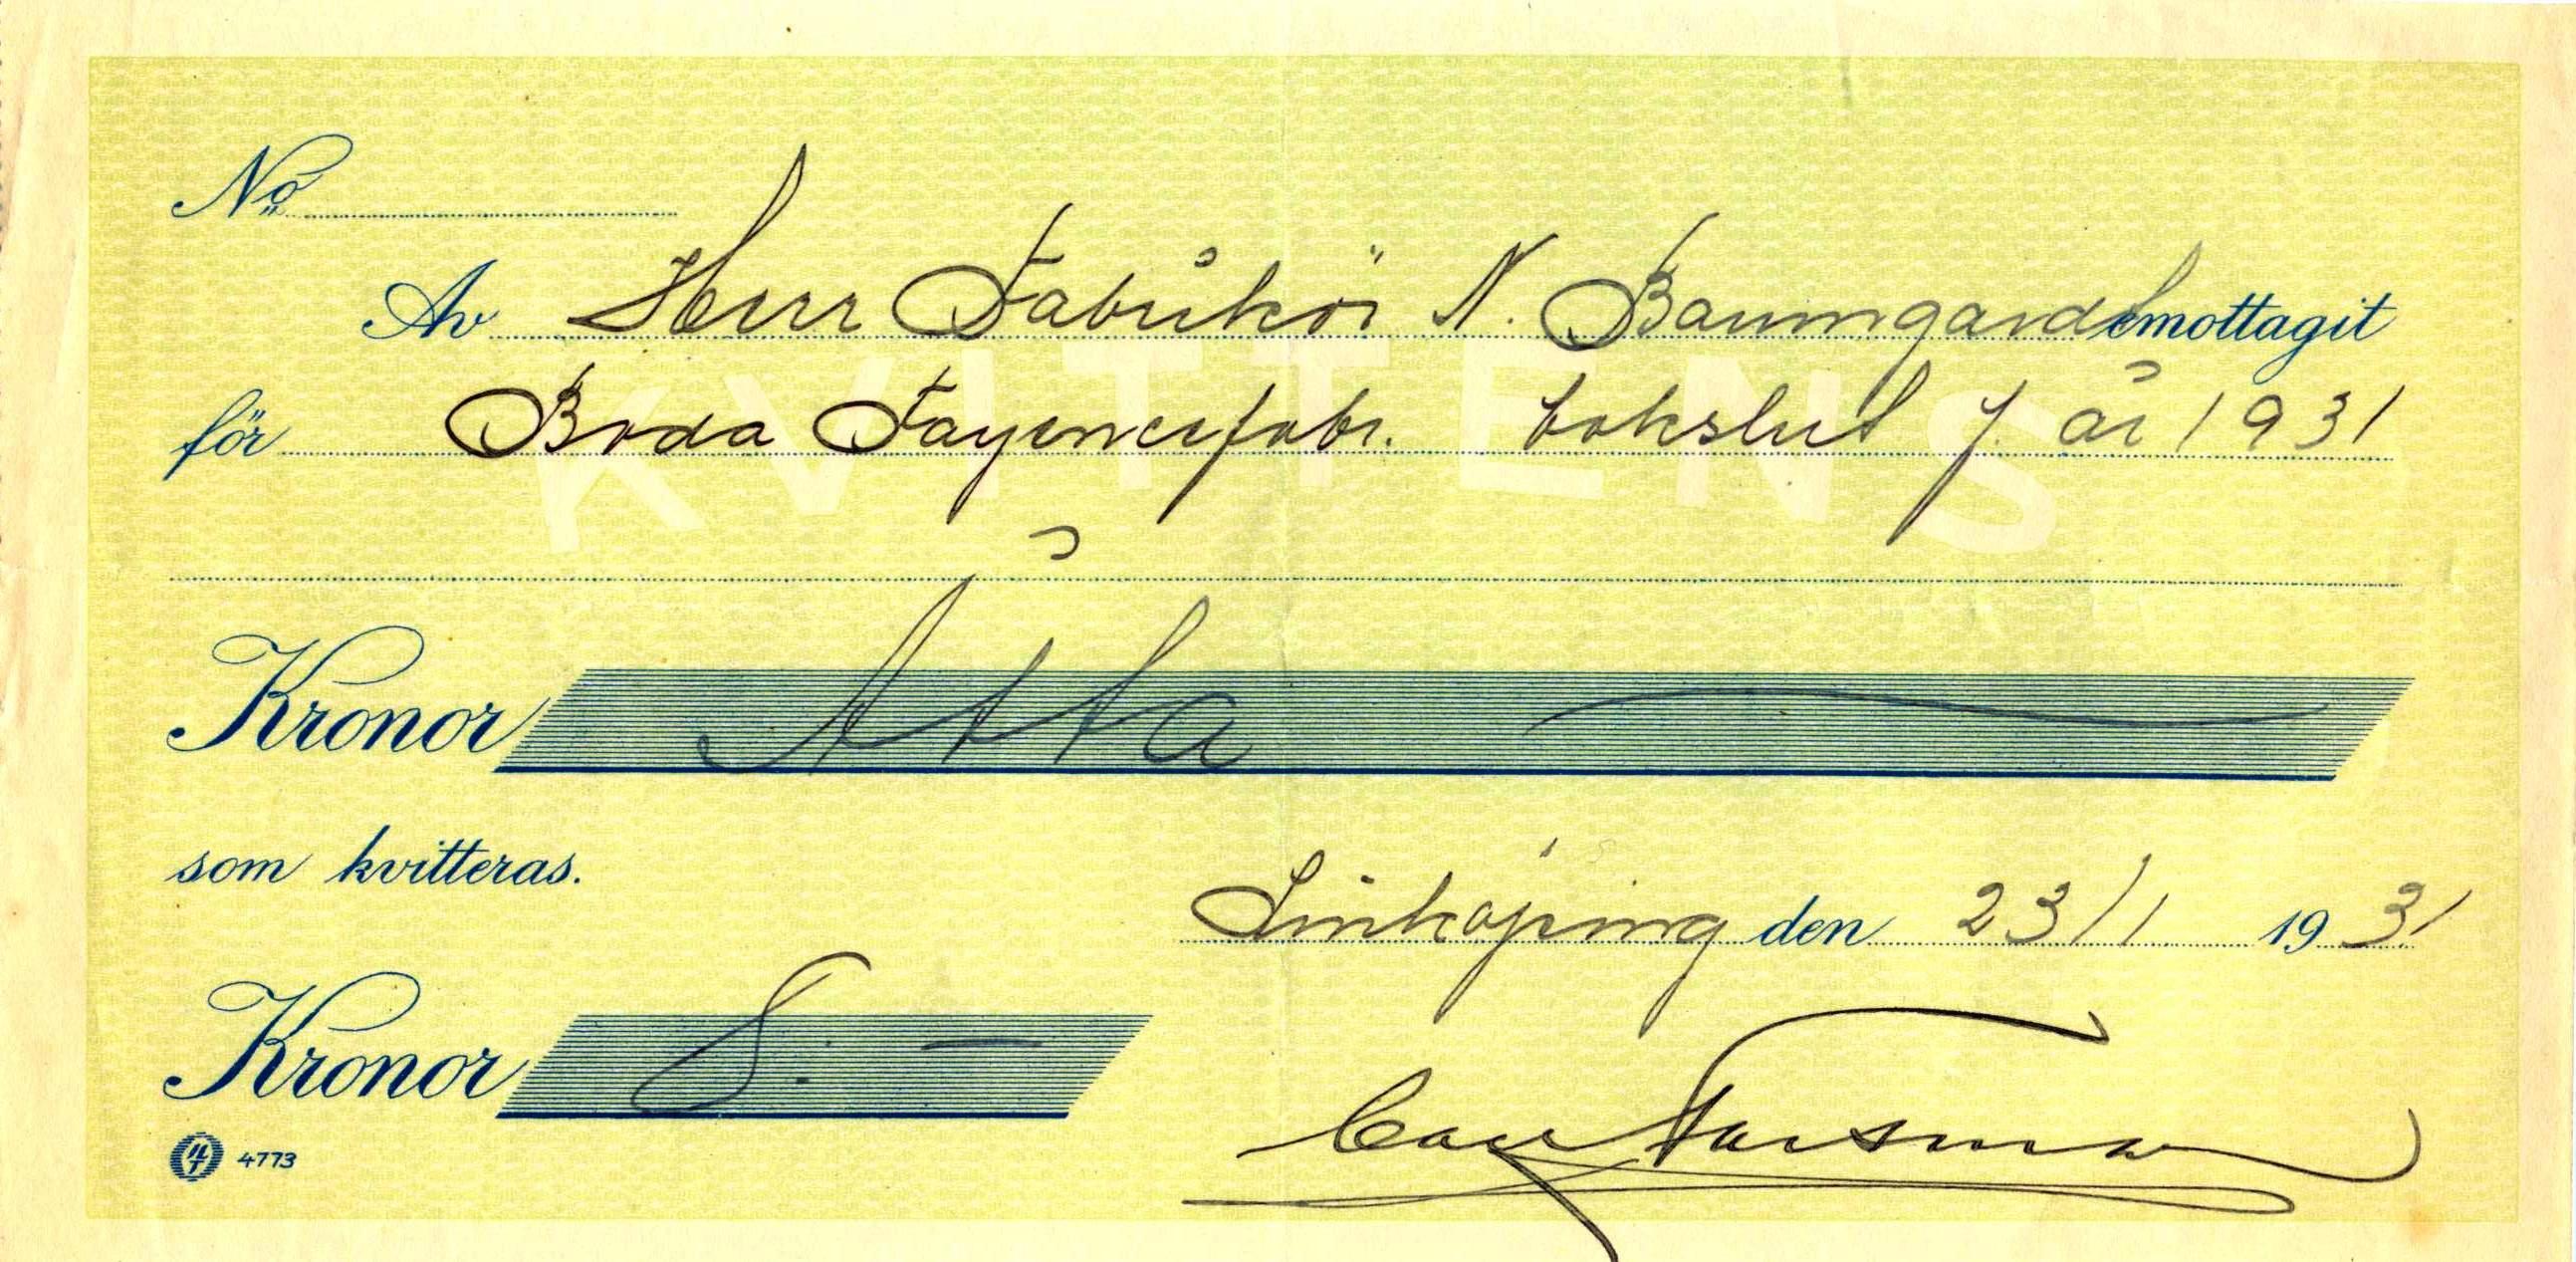 No
Av Herr Fabrikör N. Baumgardt emottagit
KVITTENS
för Boda Fayencefabr. bokslut f. år 1931
Kronor Åtta
som kvitteras.
Linköping den 23/1 1931
Kronor 8:-
4773